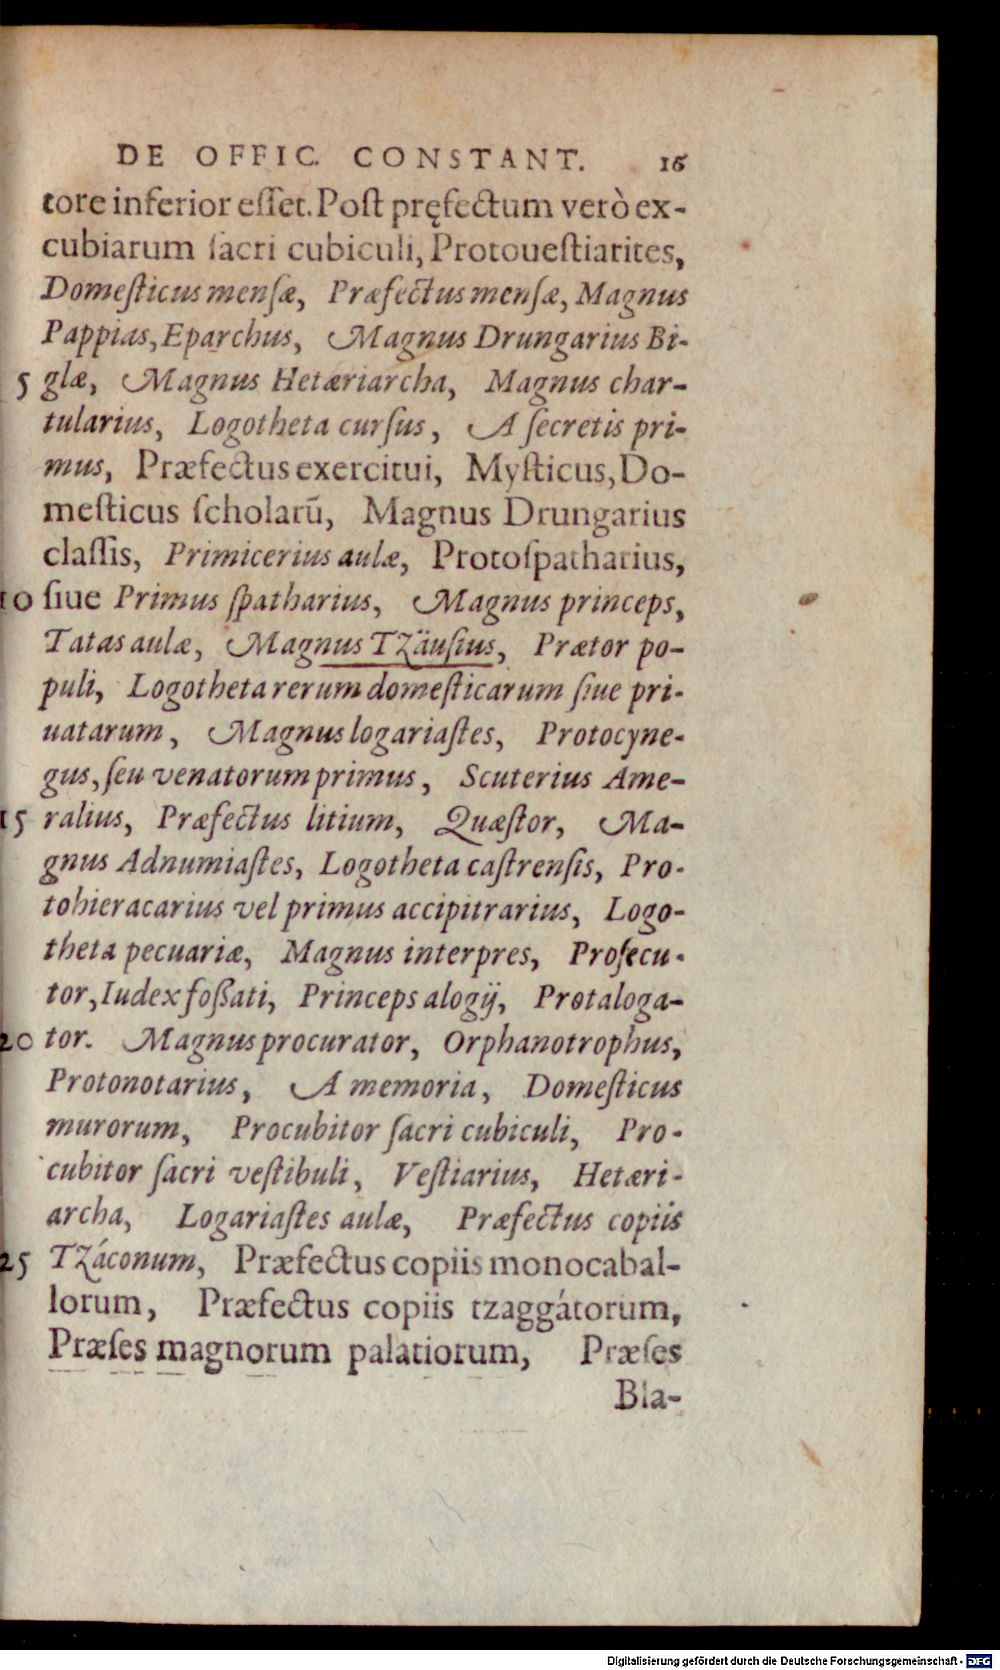 DE OFFIC. CONSTANT. 16
tore inferior esſet. Poſt pręfectum verò ex-
cubiarum ſacri cubiculi, Protoueſtiarites,
Domeſticus menſæ, Præfectus menſæ, Magnus
Pappias, Eparchus, Magnus Drungarius Bi-
5 glæ, Magnus Hetæriarcha, Magnus char-
tularius, Logotheta curſus, A ſecretis pri-
mus, Præfectus exercitui, Myſticus, Do-
meſticus ſcholarū, Magnus Drungarius
claſſis, Primicerius aulæ, Protoſpatharius,
10 ſiue Primus ſpatharius, Magnus princeps,
Tatas aulæ, Magnus Tzäuſius, Prætor po-
puli, Logotheta rerum domeſticarum ſiue pri-
uatarum, Magnus logariaſtes, Protocyne-
gus, ſeu venatorum primus, Scuterius Ame-
15 ralius, Præfectus litium, Quæſtor, Ma-
gnus Adnumiaſtes, Logotheta caſtrenſis, Pro-
tohieracarius vel primus accipitrarius, Logo-
theta pecuariæ, Magnus interpres, Proſecu-
tor, Iudex foßati, Princeps alogij, Protaloga-
20 tor. Magnus procurator, Orphanotrophus,
Protonotarius, A memoria, Domeſticus
murorum, Procubitor ſacri cubiculi, Pro-
cubitor ſacri veſtibuli, Veſtiarius, Hetæri-
archa, Logariaſtes aulæ, Præfectus copiis
25 Tzáconum, Præfectus copiis monocabal-
lorum, Præfectus copiis tzaggátorum,
Præſes magnorum palatiorum, Præſes
Bla-
Digitalisierung gefördert durch die Deutsche Forschungsgemeinschaft - DFG